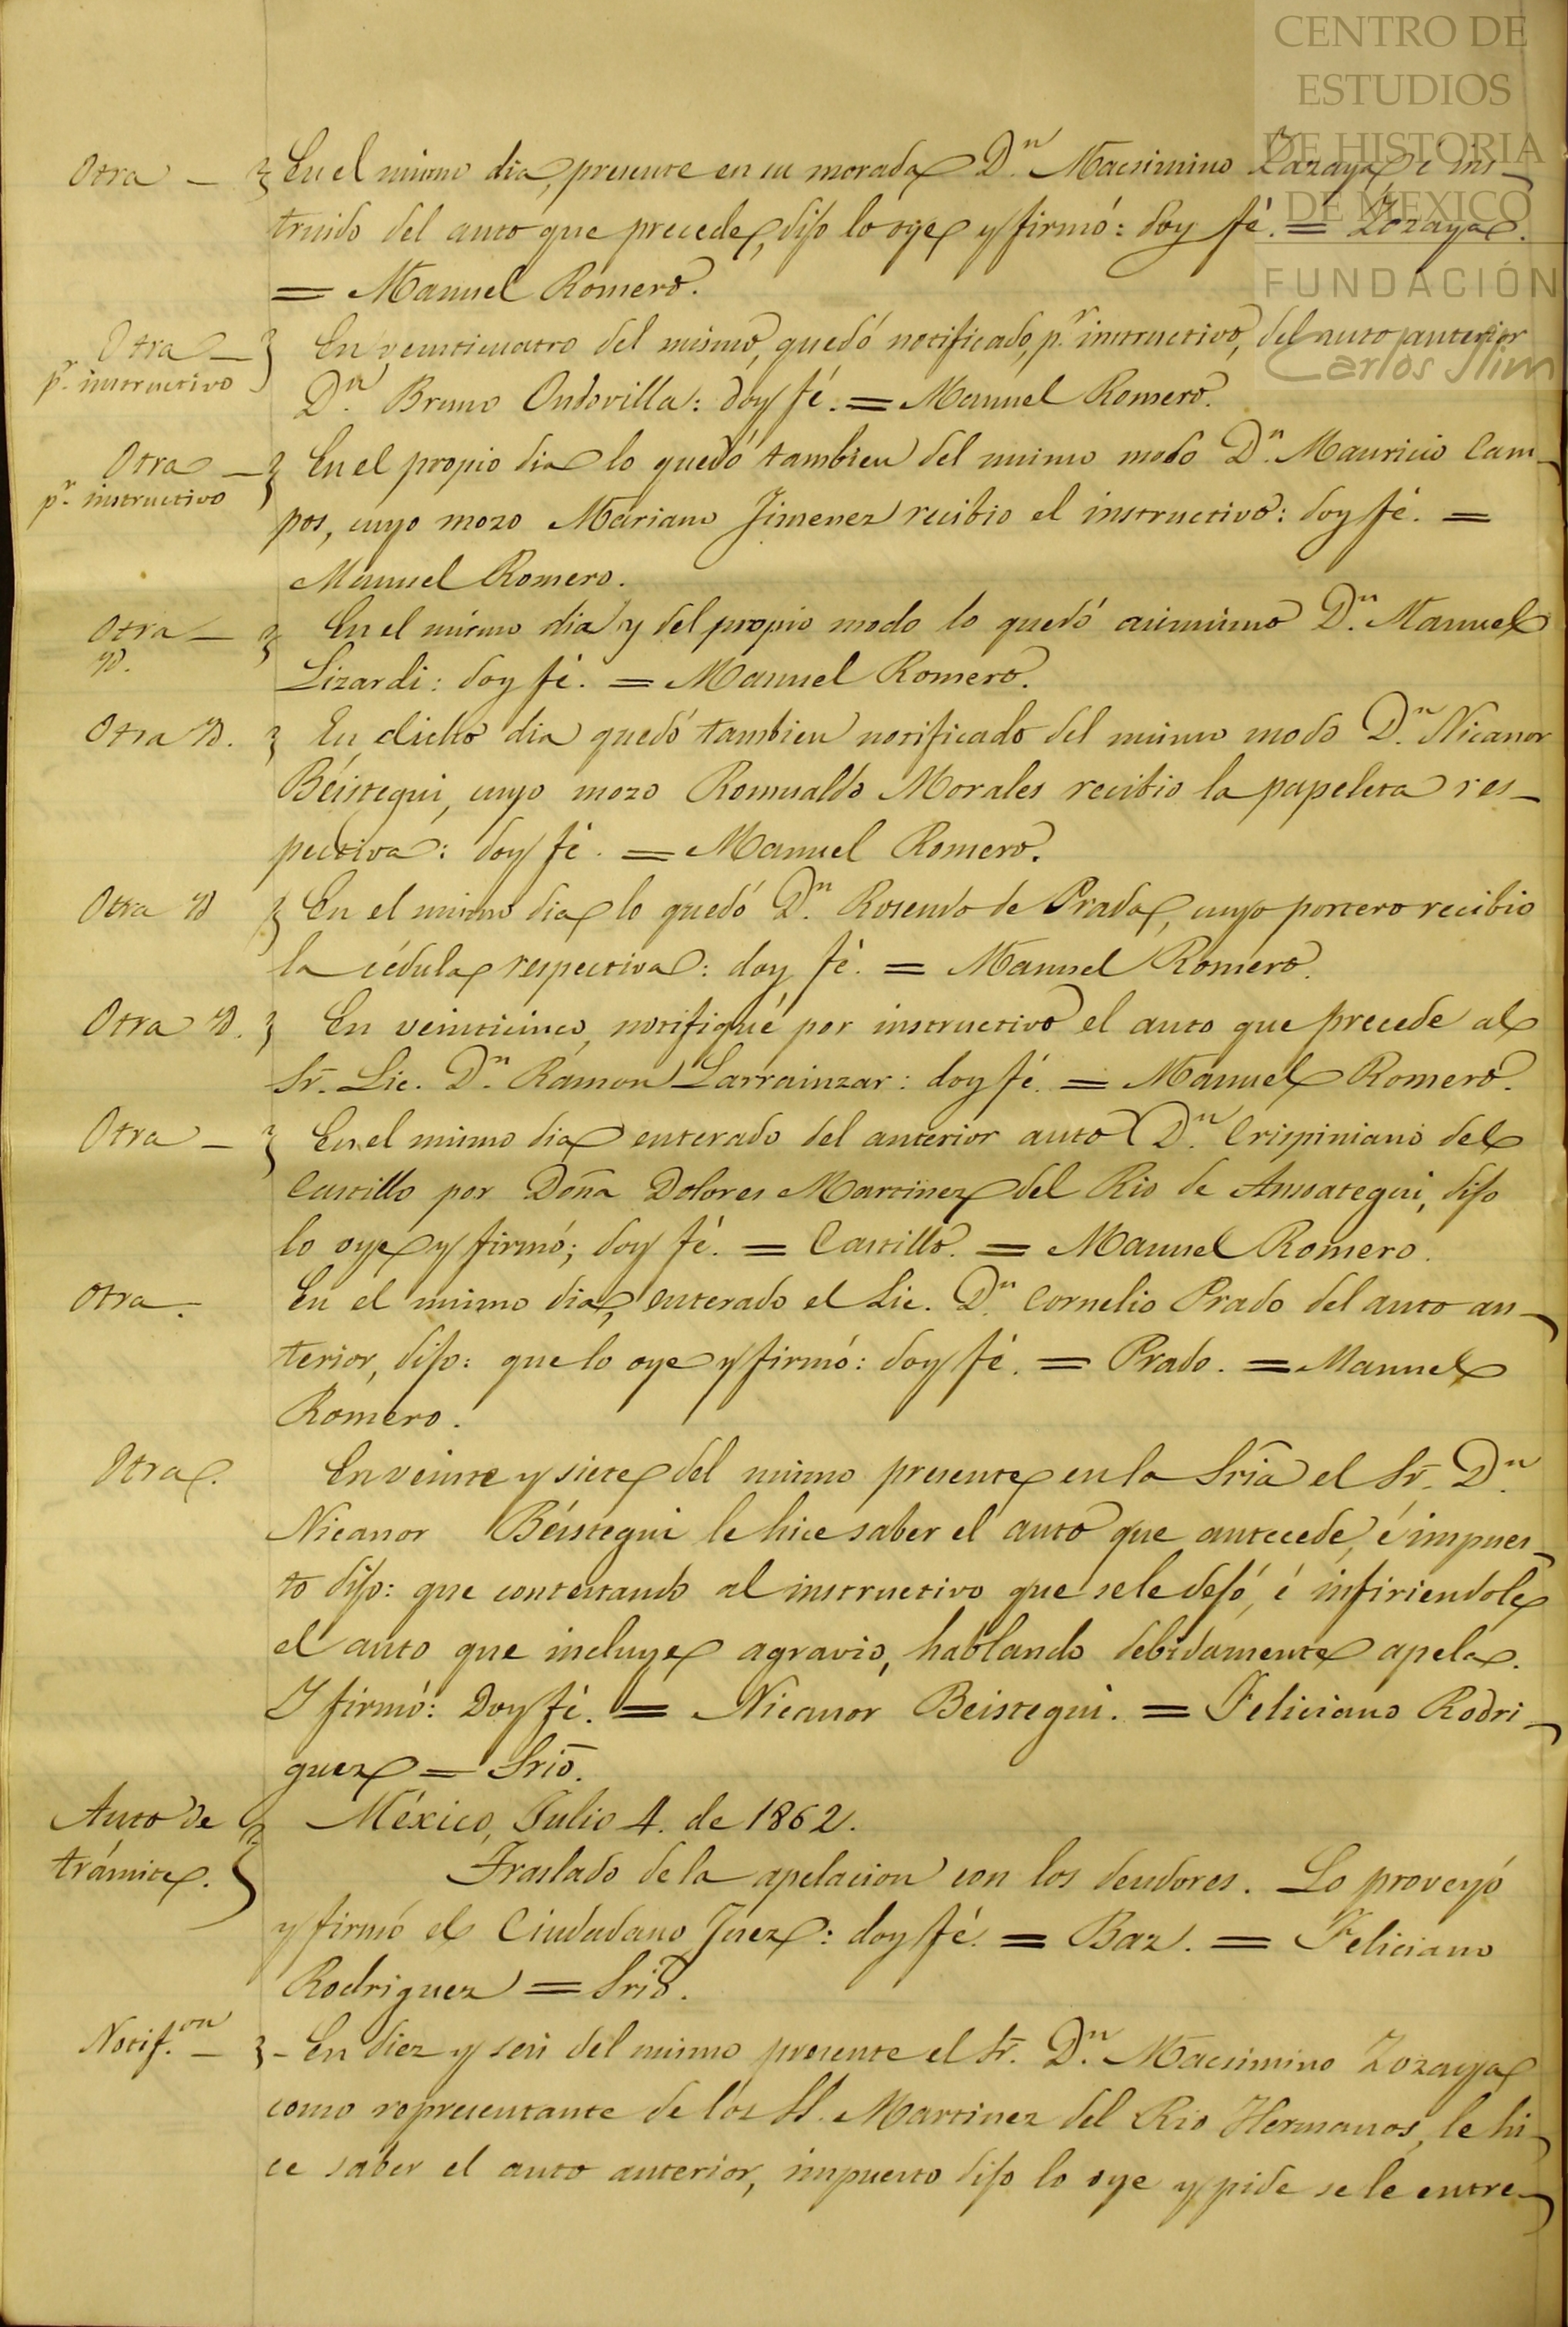 CENTRO DE
ESTUDIOS
DE HISTORIA
DE MEXICO
FUNDACIÓN
Carlos Slim
Otra — En el mismo dia, presente en su morada D.n Macsimino Zozaya é ins-
truido del auto que precede, dijo lo oye y firmó: doy fé. = Zozaya.
= Manuel Romero.
Otra — En veinticuatro del mismo, quedó notificado, p.r instructivo, del auto anterior
p.r instructivo
D.n Bruno Ondovilla: doy fé. = Manuel Romero.
Otra — En el propio dia lo quedó tambien del mismo modo D.n Mauricio Cam-
p.r instructivo
pos, cuyo mozo Mariano Jimenez recibio el instructivo: doy fé. =
Manuel Romero.
Otra — En el mismo dia y del propio modo lo quedó asimismo D.n Manuel
Yd.
Lizardi: doy fé. = Manuel Romero.
Otra Yd. En dicho dia quedó tambien notificado del mismo modo D.n Nicanor
Béistegui, cuyo mozo Romualdo Morales recibio la papeleta res-
pectiva: doy fé. = Manuel Romero.
Otra Yd En el mismo dia lo quedó D.n Rosendo de Prada, cuyo portero recibio
la cédula respectiva: doy fé. = Manuel Romero.
Otra Yd. En veinticinco, notifiqué por instructivo el auto que precede al
Sr. Lic. D.n Ramon Larrainzar: doy fé. = Manuel Romero.
Otra — En el mismo dia enterado del anterior auto D.n Crispiniano del
Castillo por Doña Dolores Martinez del Rio de Ansoategui, dijo
lo oye y firmó; doy fé. = Castillo. = Manuel Romero.
Otra. En el mismo dia, enterado el Lic. D.n Cornelio Prado del auto an-
terior, dijo: que lo oye y firmó: doy fé. = Prado. = Manuel
Romero.
Otra. En veinte y siete del mismo presente en la Sría el Sr. D.n
Nicanor Béistegui le hice saber el auto que antecede, é impues-
to dijo: que contestando al instructivo que se le dejó, é infiriendole
el auto que incluye agravio, hablando debidamente apela.
Y firmó: Doy fé. = Nicanor Beistegui. = Feliciano Rodri-
guez = Srio.
Auto de México, Julio 4. de 1862.
trámite. Traslado de la apelacion con los deudores. Lo proveyó
y firmó el Ciudadano Juez: doy fé. = Baz. = Feliciano
Rodriguez = Srio.
Notif.on — En diez y seis del mismo presente el Sr. D.n Macsimino Zozaya
como representante de los SS. Martinez del Rio Hermanos, le hi-
ce saber el auto anterior, impuesto dijo lo oye y pide se le entre-